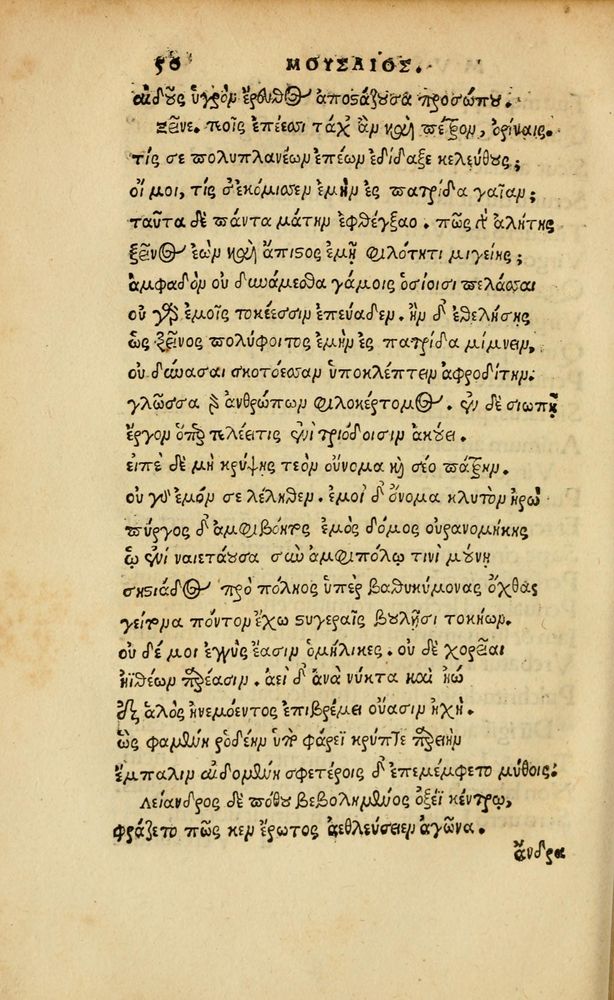 50 ΜΟΥΣΑΙΟΣ.
αἰδοῦς ὑγρὸν ἔρευθος ἀποστάζουσα προσώπου.
Ξεῖνε. τεοῖς ἐπέεσσι τάχ' ἂν καὶ πέτρον, ὀρίναις.
τίς σε πολυπλανέων ἐπέων ἐδίδαξε κελεύθους;
οἴ μοι, τίς σ' ἐκόμισεν ἐμὴν ἐς πατρίδα γαῖαν;
ταῦτα δὲ πάντα μάτην ἐφθέγξαο. πῶς δ' ἀλήτης
ξεῖνος ἐὼν καὶ ἄπιστος ἐμῇ φιλότητι μιγείης;
ἀμφαδὸν οὐ δυνάμεσθα γάμοις ὁσίοισι πελάσσαι
οὐ γὰρ ἐμοῖς τοκέεσσιν ἐπεύαδεν. ἢν δ' ἐθελήσῃς
ὡς ξεῖνος πολύφοιτος ἐμὴν ἐς πατρίδα μίμνειν,
οὐ δύνασαι σκοτόεσσαν ὑποκλέπτειν ἀφροδίτην.
γλῶσσα γὰρ ἀνθρώπων φιλοκέρτομος. ἐν δὲ σιωπῇ
ἔργον ὅπερ τελέει τις ἐνὶ τριόδοισιν ἀκούει.
εἰπὲ δὲ μὴ κρύψῃς τεὸν οὔνομα καὶ σέο πάτρην.
οὐ γὰρ ἐμόν σε λέληθεν. ἐμοὶ δ' ὄνομα κλυτὸν ἡρώ
πύργος δ' ἀμφιβόητος ἐμὸς δόμος οὐρανομήκης
ᾧ ἐνὶ ναιετάουσα σὺν ἀμφιπόλῳ τινὶ μούνῃ
σηστιάδος πρὸ πόληος ὑπὲρ βαθυκύμονας ὄχθας
γείτονα πόντον ἔχω στυγεραῖς βουλῇσι τοκήων.
οὐδέ μοι ἐγγὺς ἔασιν ὁμήλικες. οὐδὲ χορεῖαι
ἠϊθέων παρέασιν. ἀεὶ δ' ἀνὰ νύκτα καὶ ἠῶ
ἐξ ἁλὸς ἠνεμόεντος ἐπιβρέμει οὔασιν ἠχή.
ὡς φαμένη ῥοδέην ὑπὸ φάρεϊ κρύπτε παρειὴν
ἔμπαλιν αἰδομένη σφετέροις δ' ἐπεμέμφετο μύθοις.
Λείανδρος δὲ πόθου βεβολημένος ὀξέϊ κέντρῳ,
φράζετο πῶς κεν ἔρωτος ἀεθλεύσειεν ἀγῶνα.
ἄνδρα